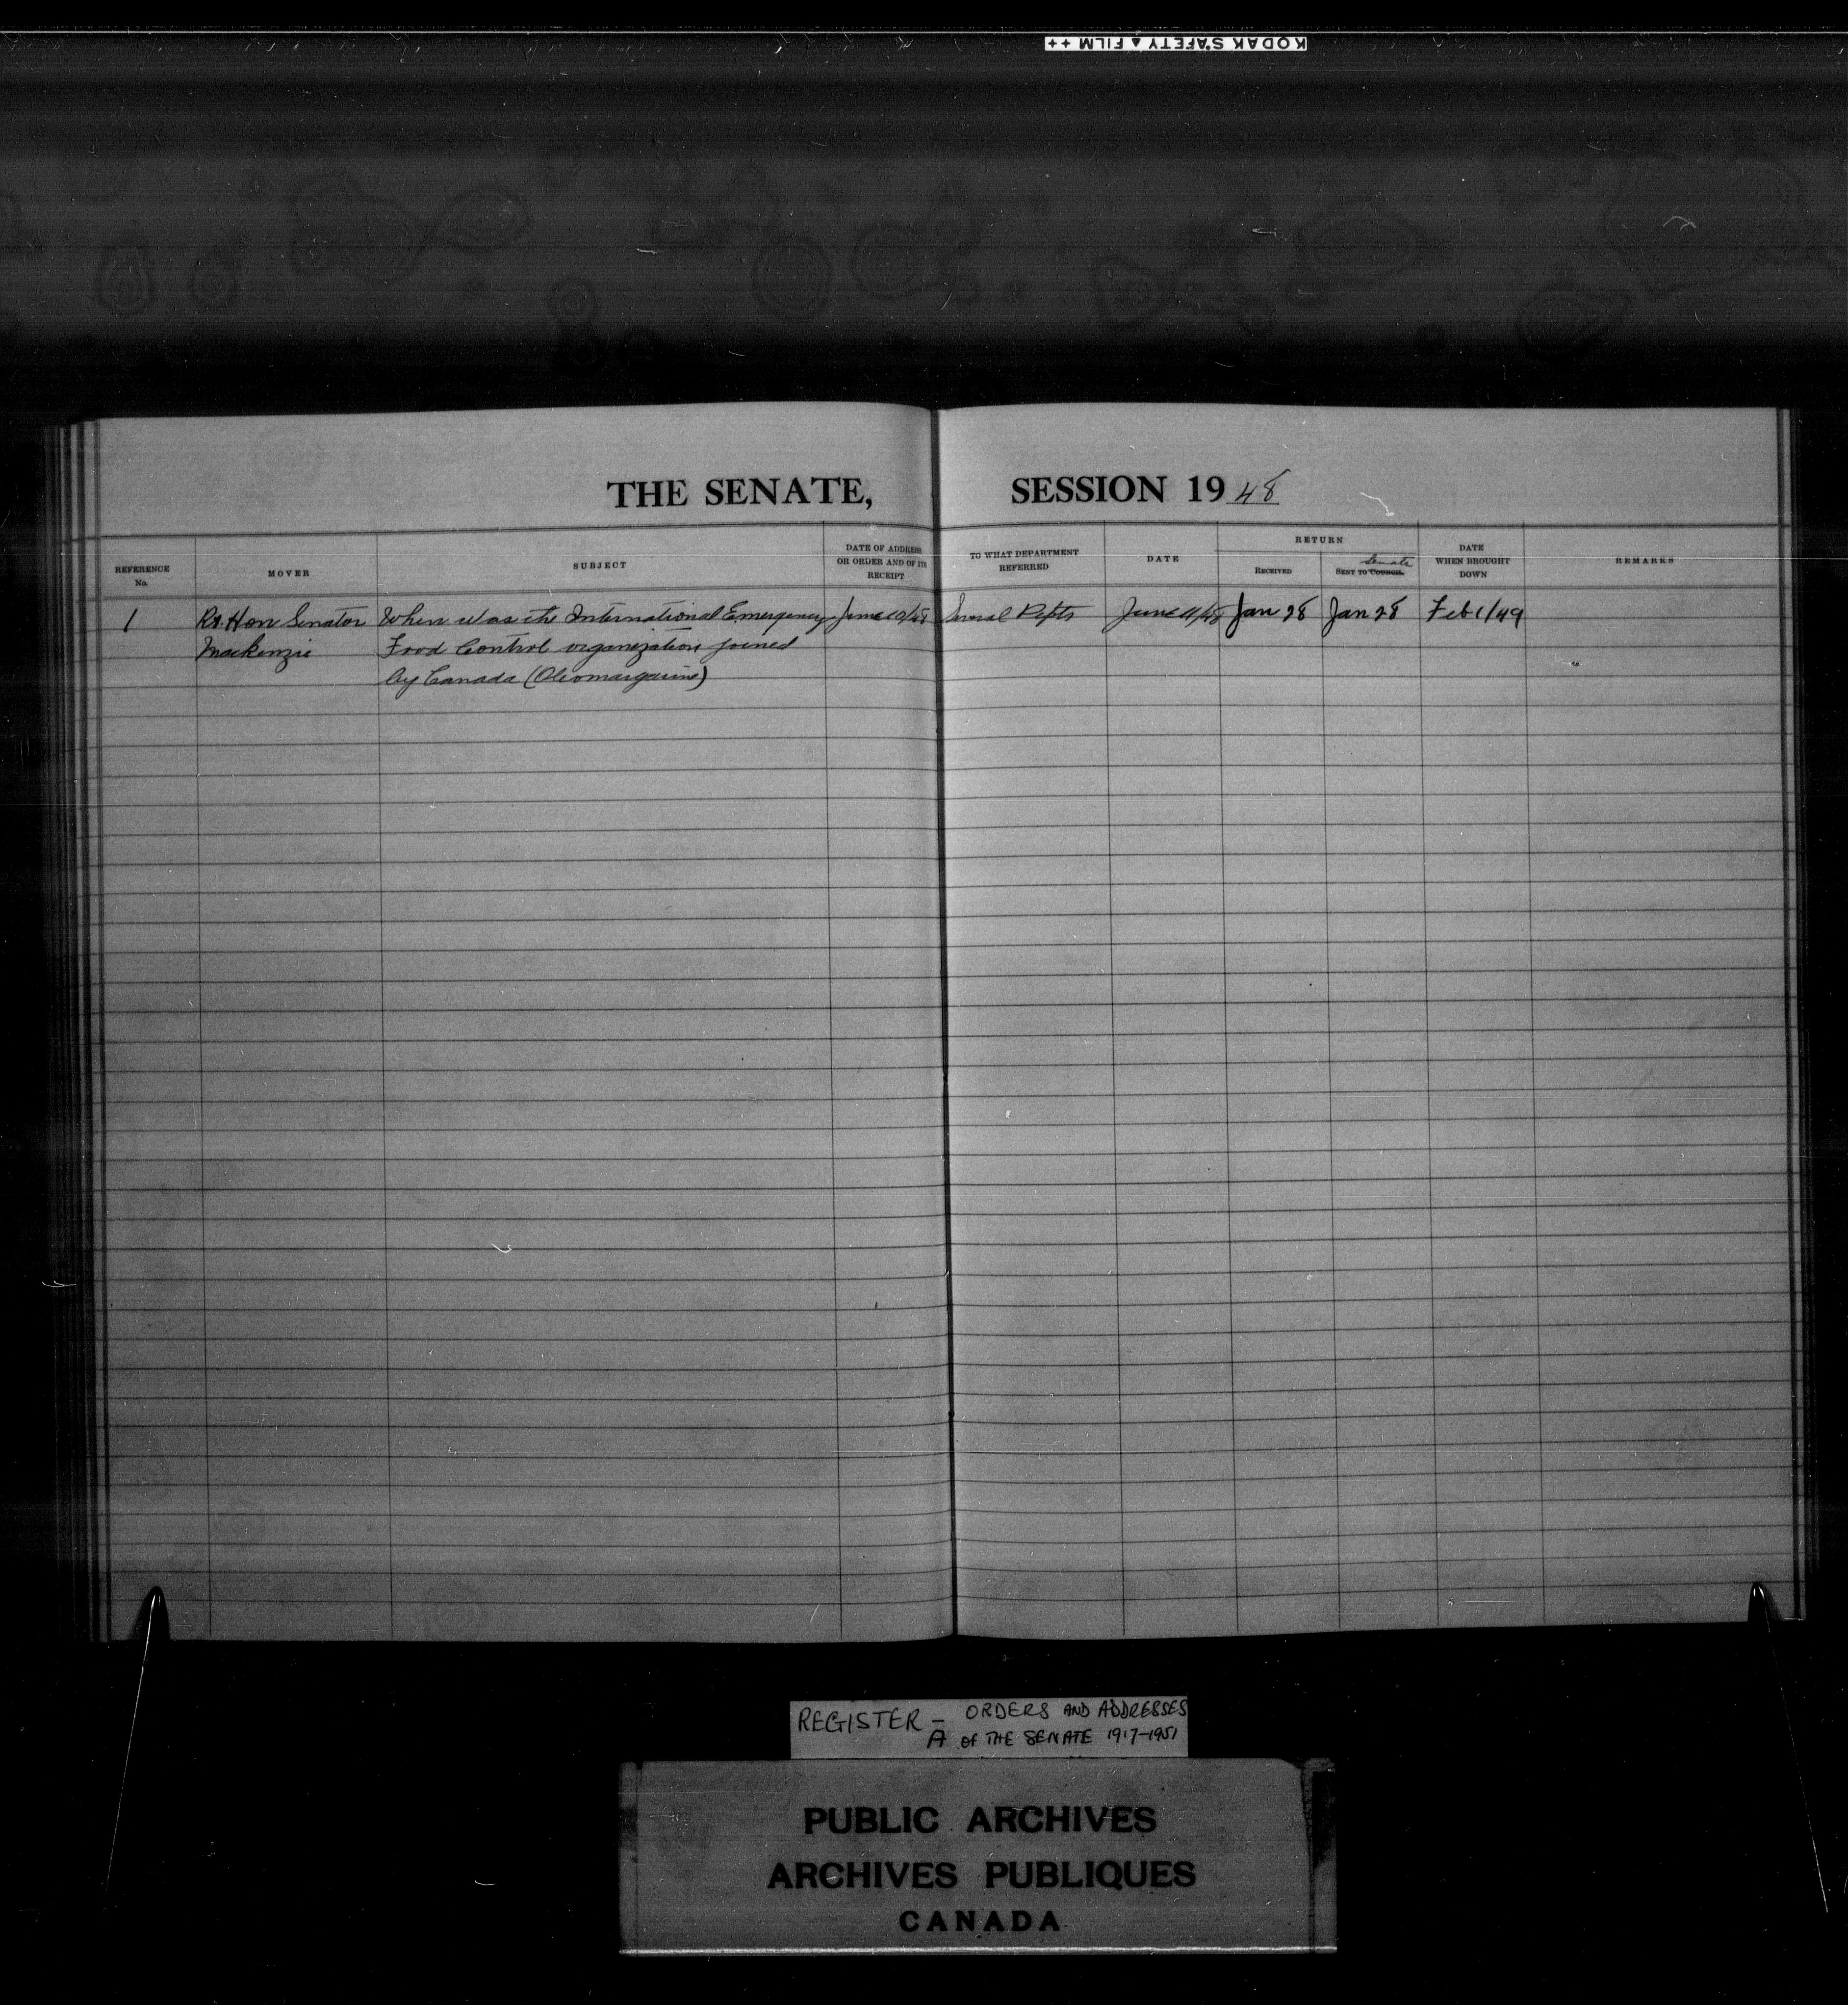 KODAK SAFETY ▲ FILM ++
THE SENATE, SESSION 19 48
REFERENCE No.
MOVER
SUBJECT
DATE OF ADDRESS OR ORDER AND OF ITS RECEIPT
TO WHAT DEPARTMENT REFERRED
DATE
RETURN
RECEIVED
SENT TO COUNCIL Senate
DATE WHEN BROUGHT DOWN
REMARKS
1 Rt. Hon Senator When was the International Emergency June 10/48 Several Depts June 11/48 Jan 28 Jan 28 Feb 1/49
Mackenzie Food Control organization joined
by Canada (Oleomargarine)
REGISTER - ORDERS AND ADDRESSES
A OF THE SENATE 1917-1951
PUBLIC ARCHIVES
ARCHIVES PUBLIQUES
CANADA